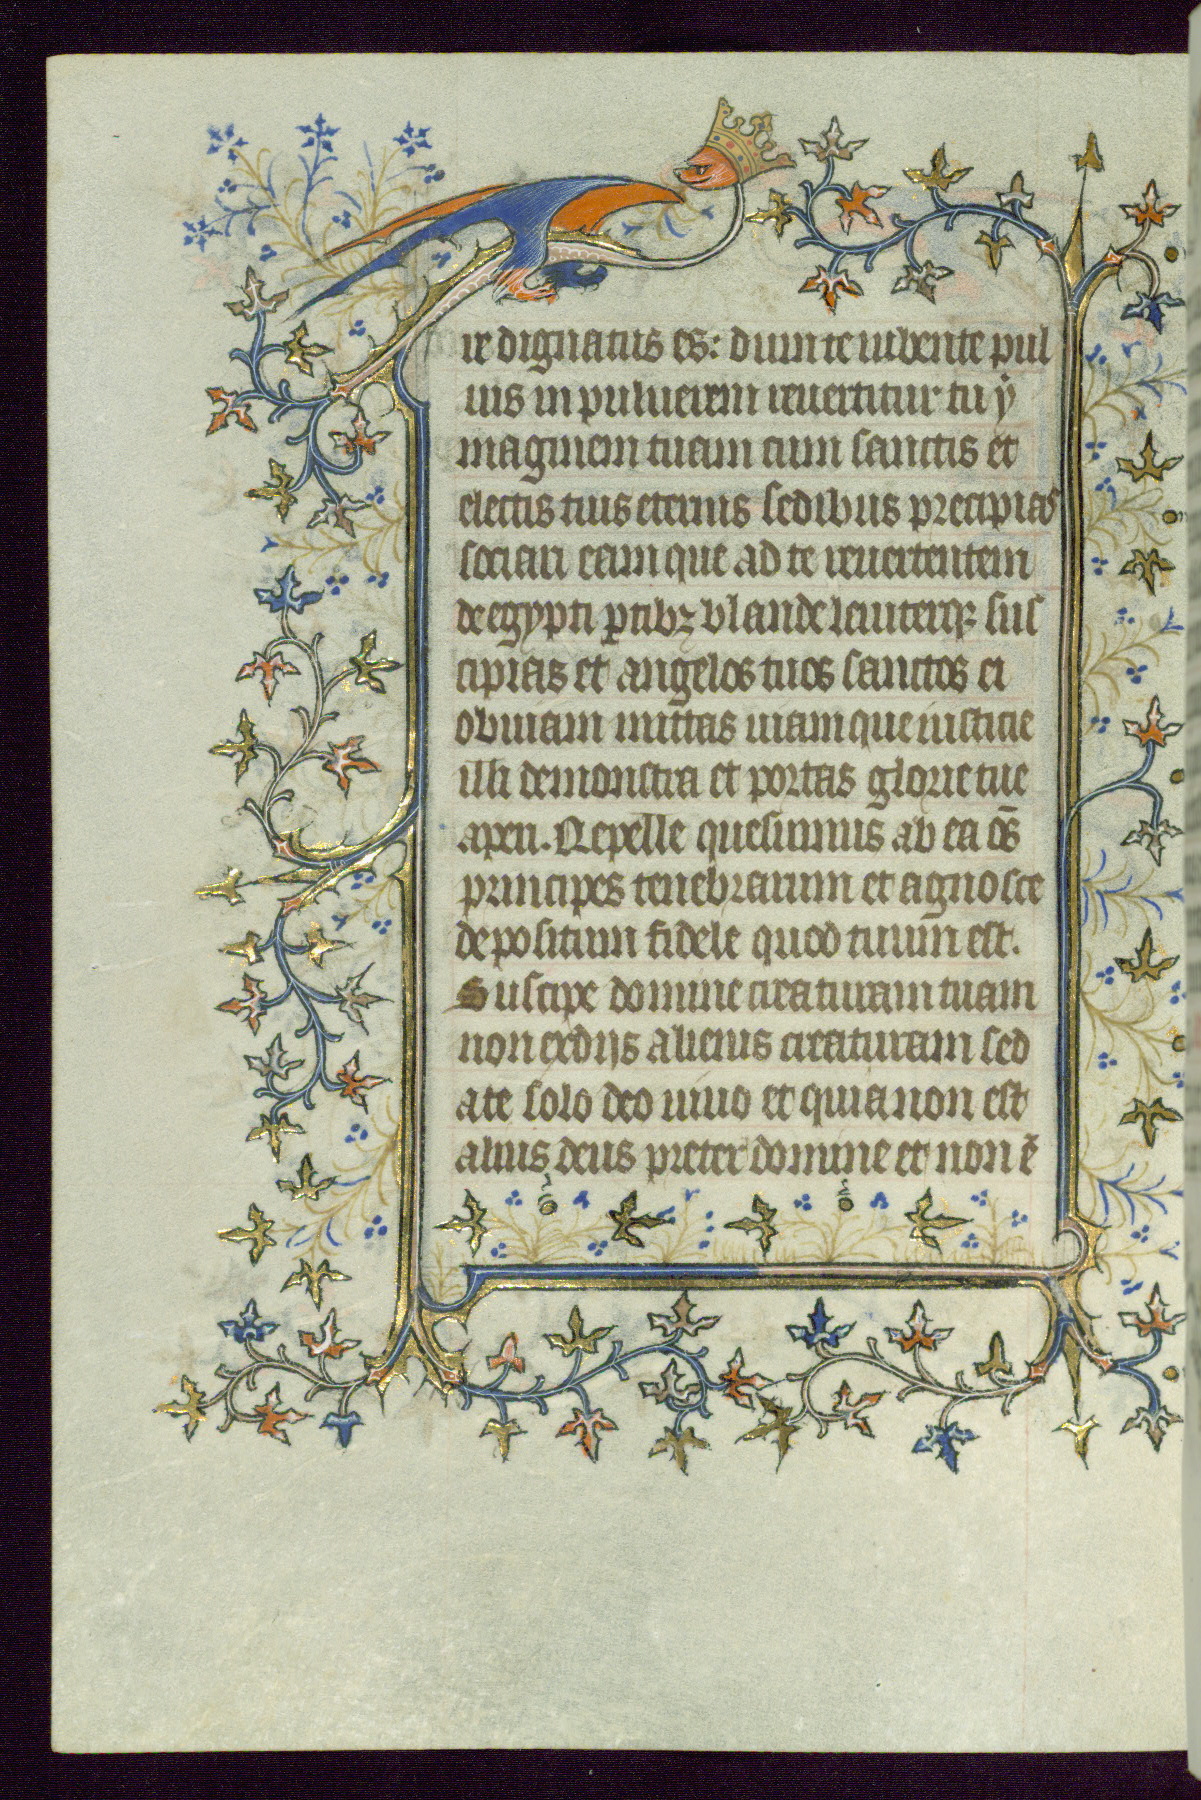 re dignatus es: dum te iubente pul
uis in puluerem reuertitur tu ẏ
maginem tuam cum sanctis et
electis tuis eternis sedibus precipias
sociari eamque ad te reuertentem
de egypti ꝑtibꝫ blande leniterqꝫ sus
cipias et angelos tuos sanctos ei
obuiam mittas uiamque iusticie
illi demonstra et portas glorie tue
aperi. Repelle quesumus ab ea oēs
principes tenebrarum et agnosce
depositum fidele quod tuum est.
Suscipe domine creaturam tuam
non ex dijs alienis creaturam sed
a te solo deo uiuo et quia non est
alius deus preter domine et non ē